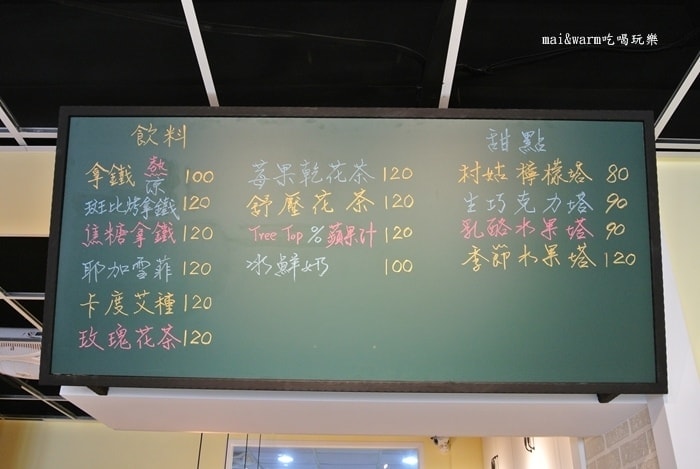 mai&warm吃喝玩樂
飲料
拿鐵 熱 涼 100
班比烤拿鐵 120
焦糖拿鐵 120
耶加雪菲 120
卡度艾種 120
玫瑰花茶 120
莓果乾花茶 120
舒壓花茶 120
Tree Top % 蘋果汁 120
冰鮮奶 100
甜點
村姑檸檬塔 80
生巧克力塔 90
乳酪水果塔 90
季節水果塔 120